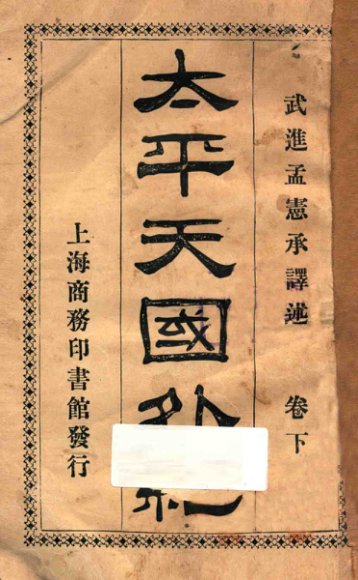 武進孟憲承譯述 卷下
太平天國外紀
上海商務印書館發行